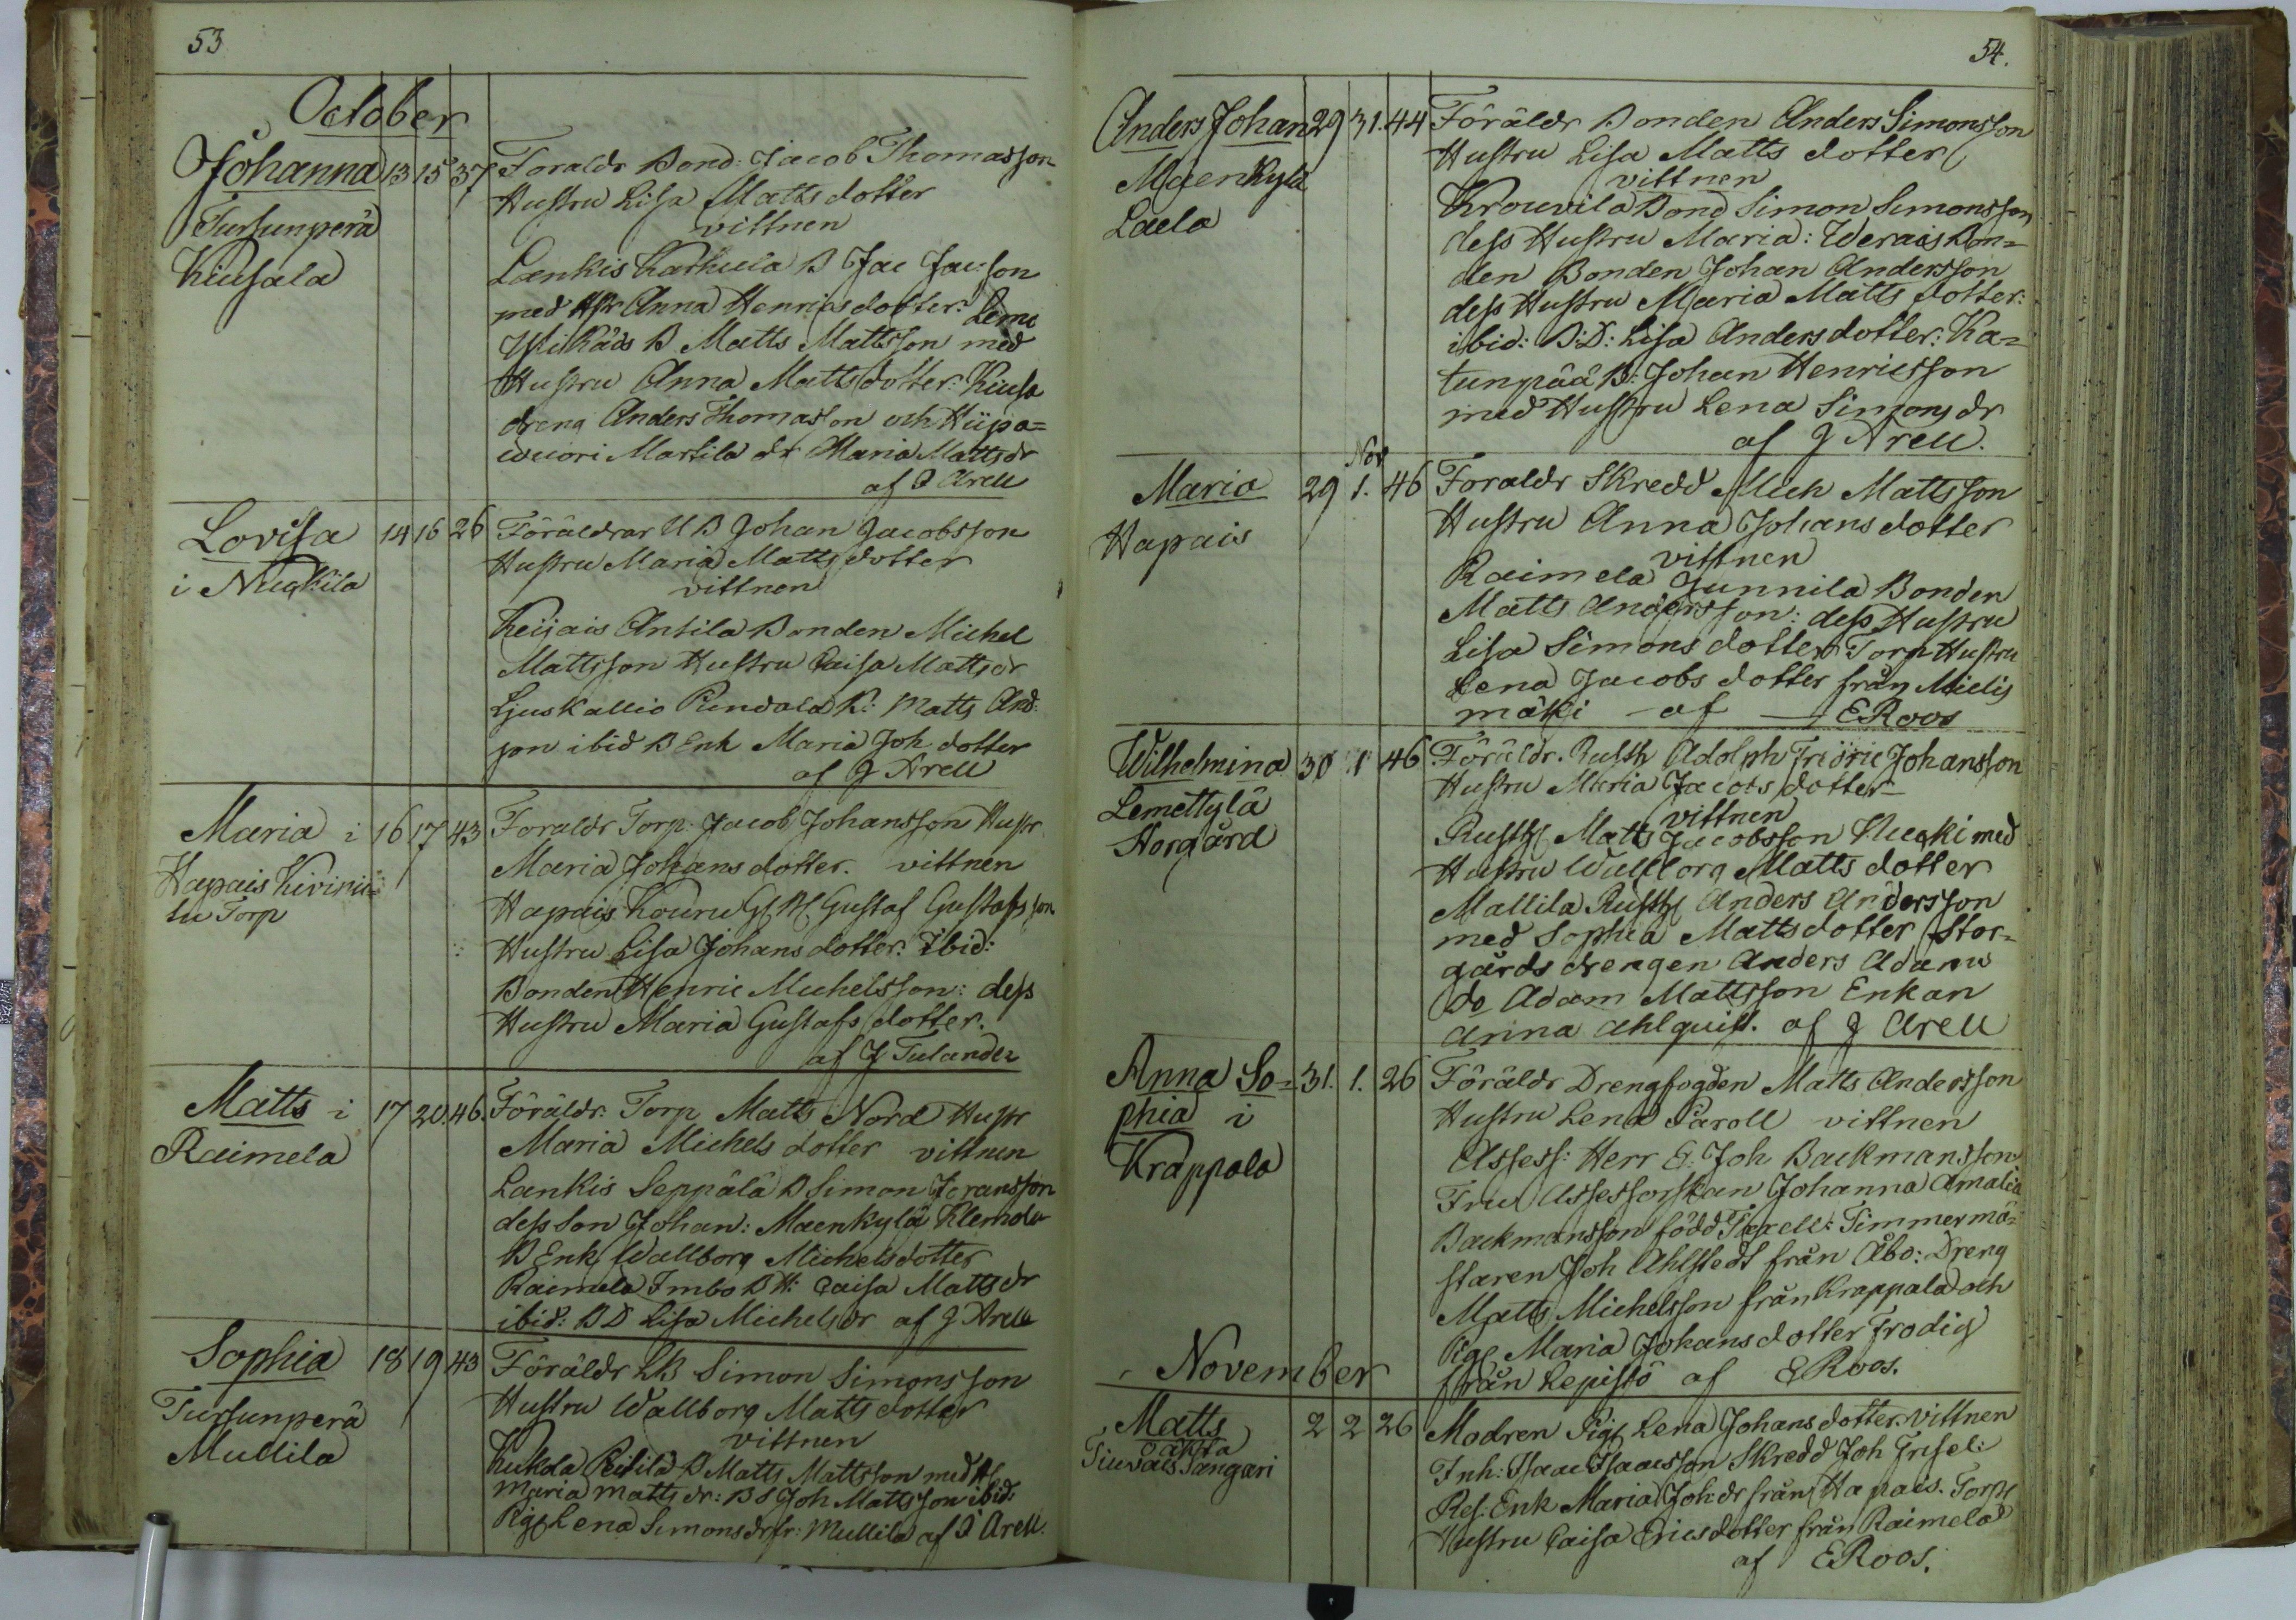 53
October
Johanna 13 15 37 Foraldr Bond: Jacob Thomasson
Tursunperä Hustru Lisa Matts dotter
Kiusala vittnen
Lankis Karhula B Jac Jacsson
med Hr Anna Henricsdotter: Lemu
Wikais B Matts Mattsson med
Hustru Anna Matts dotter: Kiusa
dreng Anders Thomasson och Hiipa=
wuori Martila dr Maria Matts dr
af J Arell
Lovisa 14 16 26 Föräldrar U B Johan Jacobsson
i Nuckila Hustru Maria Matts dotter
vittnen
Keijais Antila Bonden Michel
Mattsson Hustru Caisa Matts dr
Ljuskallio Rindala K: Matts And:
son ibid B Enk Maria Joh dotter
af J Arell
Maria i 16 17 43 Foraldr Torp: Jacob Johansson Hustr
Hapais Kivinii= Maria Johans dotter. vittnen
tu Torp Hapais Kouru Gustaf Gustafsson
Hustru Lisa Johans dotter: Ibid:
Bonden Henric Michelsson: dess
Hustru Maria Gustafs dotter.
af J Tulander
Matts i 17 20. 46. Föräldr: Torp Matts Nord Hustr
Raimela Maria Michels dotter vittnen
Lankis Seppälä B Simon Joransson
dess Son Johan: Maenkylä Klemola
B Enk Wallborg Michelsdotter
RaimelaImbo B H: Caisa Matts dr
ibid: B D Lisa Michels dr af J Arell
Sophia 18 19 43 Föräldr LB Simon Simonsson
Tursunperä Hustru Wallborg Matts dotter
Mullila vittnen
Kukola Peitilä B Matts Mattsson med H
Maria Matts dr: B S Joh Mattsson ibid:
Pig Lena Simons dr fr: Mullila af J Arell.
54.
Anders Johan 29 31. 44 Föräldr Bonden Anders Simonsson
Maenkylä Hustru Lisa Matts dotter
Laela vittnen
Krouvila Bond Simon Simonsson
dess Hustru Maria: Werais Bon=
den Bonden Johan Andersson
dess Hustru Maria Matts dotter:
ibid: B: D: Lisa Anders dotter: Ka=
tunpää B: Johan Henricsson
med Hustru Lena Simons dr
af J Arell.
Nov
Maria 29 1. 46 Foraldr Skredd Mich Mattsson
Hapais Hustru Anna Johans dotter
vittnen
Raimela Junnila Bonden
Matts Andersson: dess Hustru
Lisa Simons dotter Torp Hustru
Lena Jacobs dotter från Mielis
mäki - af — E Roos
Wilhelmina 30 1 46 Föräldr. Rusth Adolph Fridric Johansson
Lemettylä Hustru Maria Jacobs dotter
Storgård vittnen
Rusth Matts Jacobsson Nucki med
Hustru Wallborg Matts dotter
Mallila Rusth Anders Andersson
med Sophia Matts dotter Stor=
gårds drengen Anders Adams
do Adam Mattsson Enkan
Anna Ahlquist. af J Arell
Anna So= 31. 1. 26 Föräldr Drengfogden Matts Andersson
phia i Hustru Lena Paroll vittnen
Krappala Assess: Herr G: Joh Backmansson
Fru Assessorskan Johanna Amalia
Backmansson född Tarell: Timmermä=
staren Joh Ahlstedt från Åbo: Dreng
Matts Michelsson från Krappala och
Pig Maria Johans dotter Frodig
från Lepistö af E Roos.
November
Matts 2 2 26 Modren Pig Lena Johans dotter. Vittnen
oäkta Inh: Isaac Isaacsson Skredd Joh Frisel:
Tiuvais Tangari Ref: Enk Maria Joh: dr från Hapais. Torp
Hustru Caisa Erics dotter från Raimela
af E Roos.